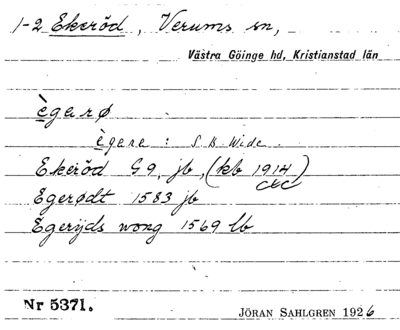 1-2 Ekeröd, Verums sn,
Västra Göinge hd, Kristianstad län
ègarø
ègare : S B Wide.
Ekeröd G9, jb, (kb 1914)
Egerødt 1583 jb
Egerijds wong 1569 lb
Nr 5371.
JÖRAN SAHLGREN 1926